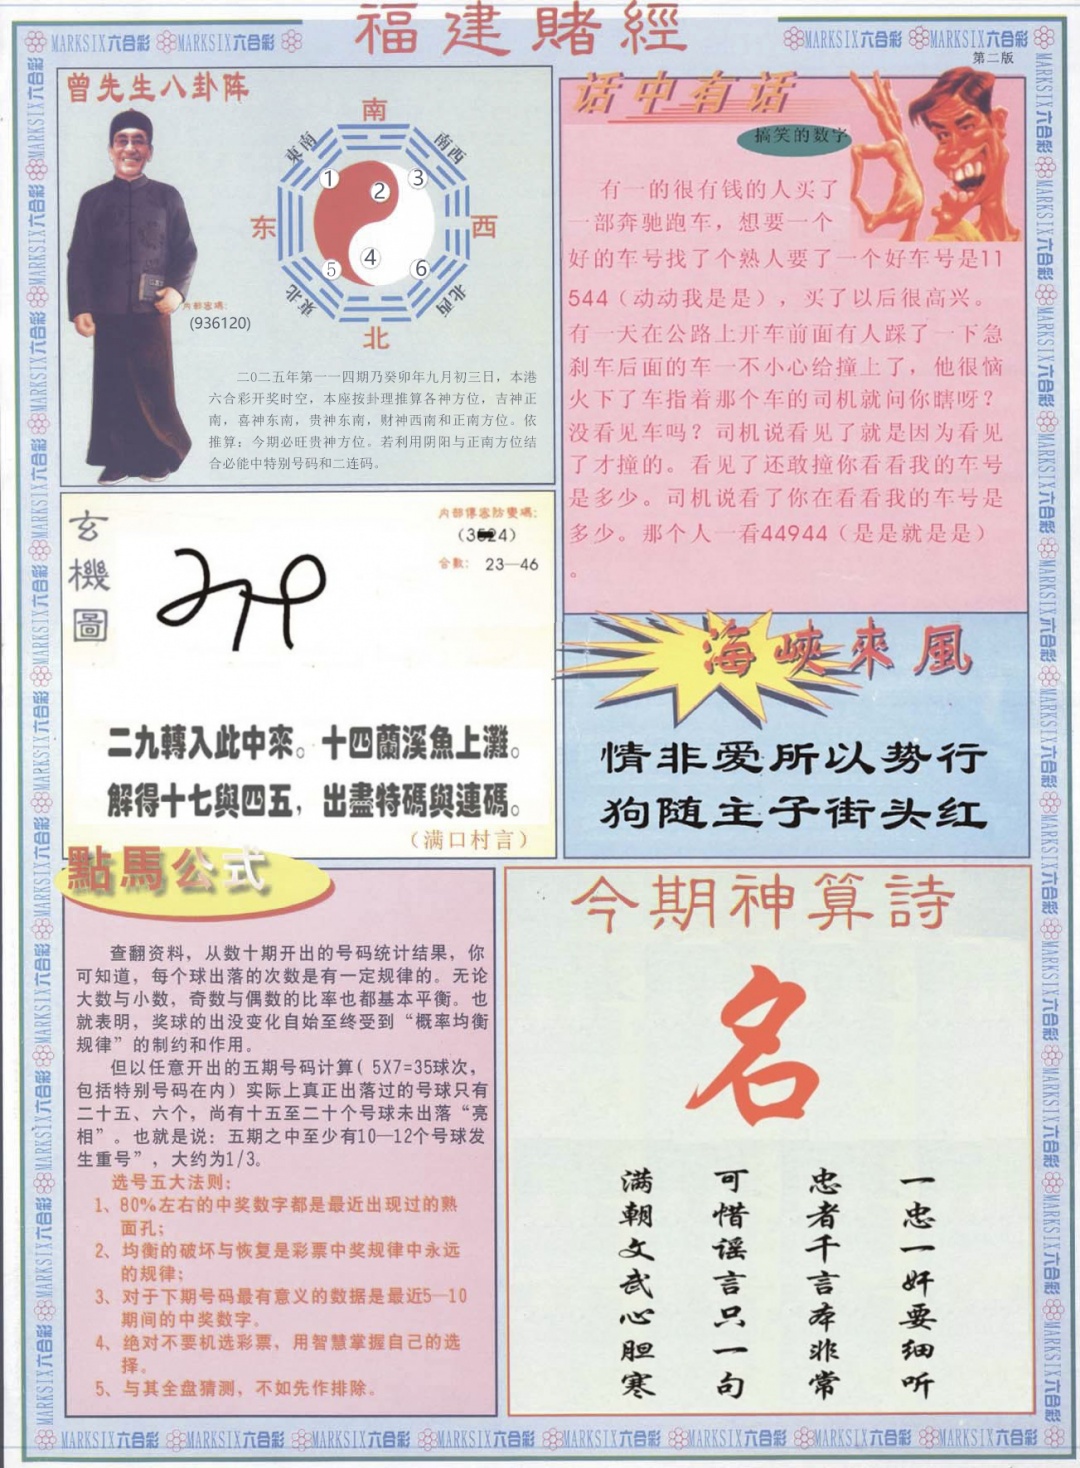 福建賭經
MARKSIX六合彩 MARKSIX六合彩
MARKSIX六合彩 MARKSIX六合彩
第二版
曾先生八卦阵
南
東南
南西
东
西
東北
北西
北
1
2
3
4
5
6
内部密碼:
(936120)
二〇二五年第一一四期乃癸卯年九月初三日，本港
六合彩开奖时空，本座按卦理推算各神方位，吉神正
南，喜神东南，贵神东南，财神西南和正南方位。依
推算：今期必旺贵神方位。若利用阴阳与正南方位结
合必能中特别号码和二连码。
话中有话
搞笑的数字
有一的很有钱的人买了
一部奔驰跑车，想要一个
好的车号找了个熟人要了一个好车号是11
544（动动我是是），买了以后很高兴。
有一天在公路上开车前面有人踩了一下急
刹车后面的车一不小心给撞上了，他很恼
火下了车指着那个车的司机就问你瞎呀？
没看见车吗？司机说看见了就是因为看见
了才撞的。看见了还敢撞你看看我的车号
是多少。司机说看了你在看看我的车号是
多少。那个人一看44944（是是就是是）
。
玄機圖
内部傳密防變碼:
合數: 23—46
二九轉入此中來。十四蘭溪魚上灘。
解得十七與四五，出盡特碼與連碼。
（满口村言）
海峽來風
情非爱所以势行
狗随主子街头红
點馬公式
查翻资料，从数十期开出的号码统计结果，你
可知道，每个球出落的次数是有一定规律的。无论
大数与小数，奇数与偶数的比率也都基本平衡。也
就表明，奖球的出没变化自始至终受到“概率均衡
规律”的制约和作用。
但以任意开出的五期号码计算( 5X7=35球次，
包括特别号码在内）实际上真正出落过的号球只有
二十五、六个，尚有十五至二十个号球未出落“亮
相”。也就是说：五期之中至少有10—12个号球发
生重号”，大约为1/3。
选号五大法则：
1、80%左右的中奖数字都是最近出现过的熟
面孔；
2、均衡的破坏与恢复是彩票中奖规律中永远
的规律；
3、对于下期号码最有意义的数据是最近5—10
期间的中奖数字。
4、绝对不要机选彩票，用智慧掌握自己的选
择。
5、与其全盘猜测，不如先作排除。
今期神算詩
名
一忠一奸要细听
忠者千言本非常
可惜谣言只一句
满朝文武心胆寒
MARKSIX六合彩 MARKSIX六合彩 MARKSIX六合彩 MARKSIX六合彩 MARKSIX六合彩 MARKSIX六合彩 MARKSIX六合彩 MARKSIX六合彩